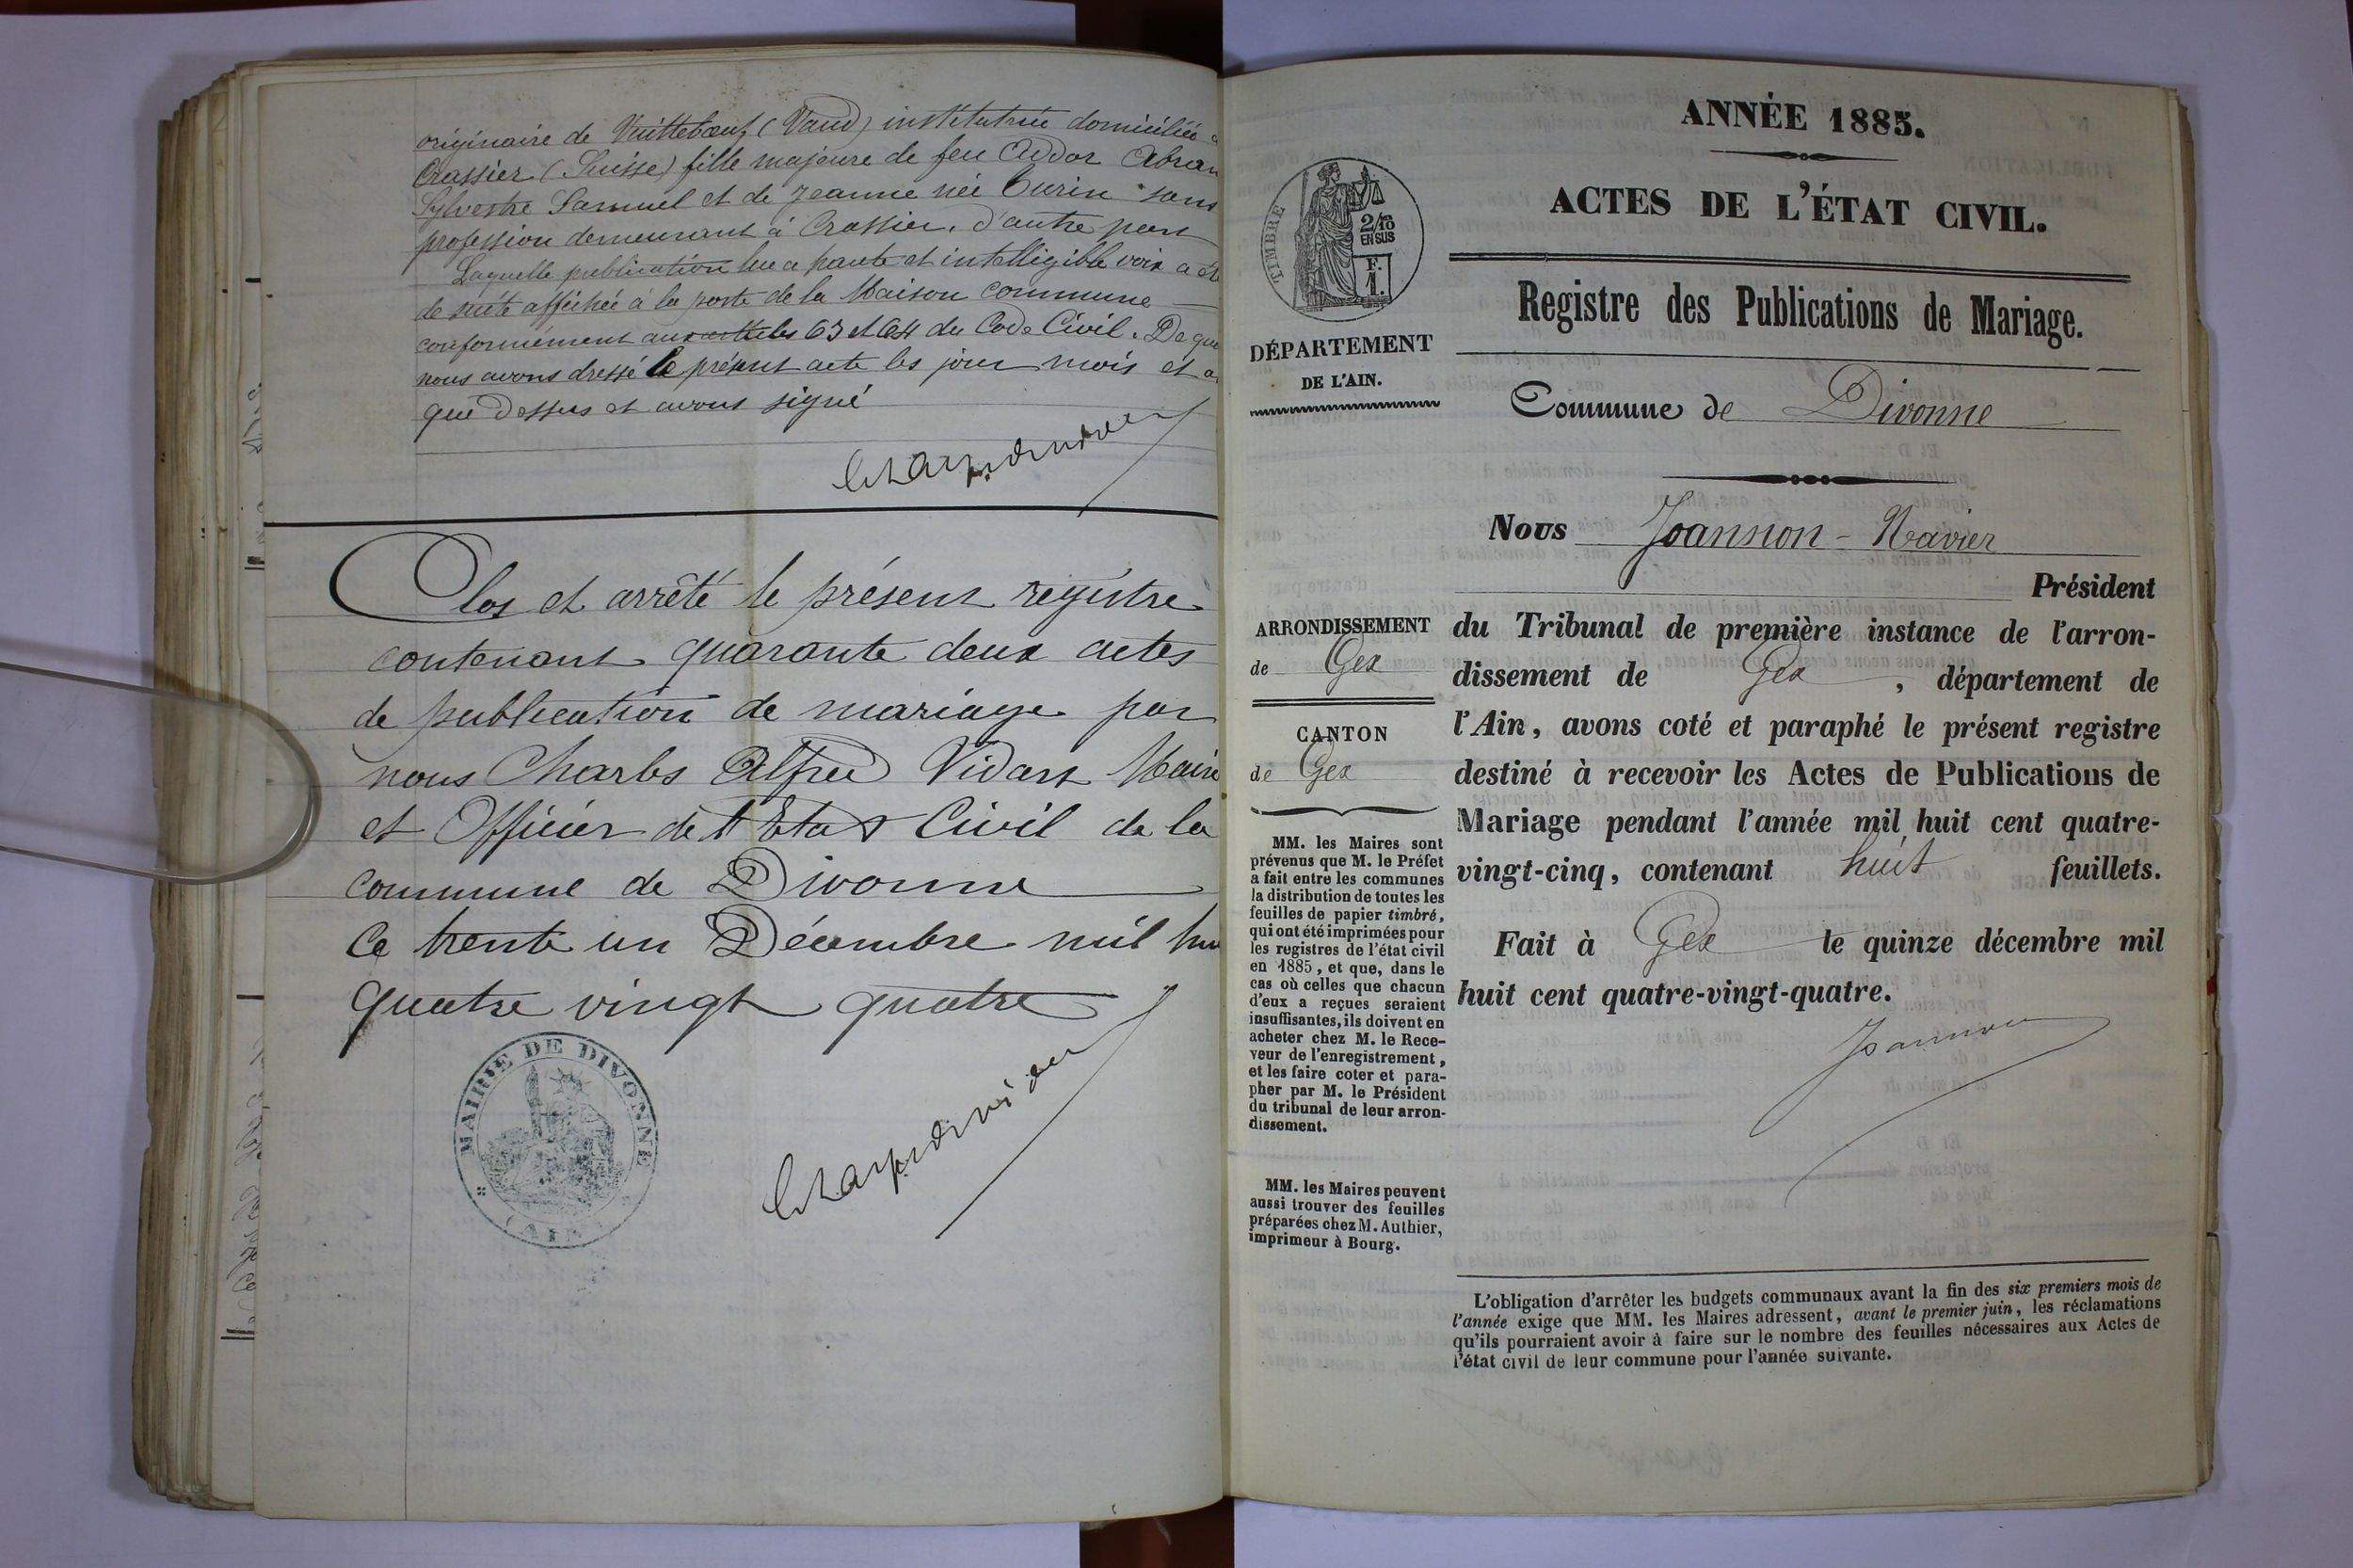 originaire de Vuittebœuf (Vaud) institutrice domiciliée
Crassier (Suisse) fille majeure de feu Addor Abram
Sylvestre Samuel et de Jeanne née Curin sans
profession demeurant à Crassier, d'autre part
Laquelle publication lue a haute et intelligible voix a été
de suite affichée à la porte de la Maison commune
conformément aux articles 63 et 64 du Code Civil. De que
nous avons dressé le présent acte les jour mois et a
que dessus et avons signé
Clos et arrêté le présent registre
contenant quarante deux actes
de publication de mariage par
nous Charles Alfred Vidart Maire
et Officier de l'Etat Civil de la
commune de Divonne
Ce trente un Décembre mil hu
quatre vingt quatre
MAIRIE DE DIVONNE
(AIN)
ANNÉE 1885.
ACTES DE L'ÉTAT CIVIL.
TIMBRE
2/10
EN SUS
F.
1.
Registre des Publications de Mariage.
DÉPARTEMENT
DE L'AIN.
Commune de Divonne
Nous Joannon-Navier
Président
du Tribunal de première instance de l'arron-
dissement de Gex, département de
l'Ain, avons coté et paraphé le présent registre
destiné à recevoir les Actes de Publications de
Mariage pendant l'année mil huit cent quatre-
vingt-cinq, contenant huit feuillets.
Fait à Gex le quinze décembre mil
huit cent quatre-vingt-quatre.
Joannon
ARRONDISSEMENT
de Gex
CANTON
de Gex
MM. les Maires sont
prévenus que M. le Préfet
a fait entre les communes
la distribution de toutes les
feuilles de papier timbré,
qui ont été imprimées pour
les registres de l'état civil
en 1885, et que, dans le
cas où celles que chacun
d'eux a reçues seraient
insuffisantes, ils doivent en
acheter chez M. le Rece-
veur de l'enregistrement,
et les faire coter et para-
pher par M. le Président
du tribunal de leur arron-
dissement.
MM. les Maires peuvent
aussi trouver des feuilles
préparées chez M. Authier,
imprimeur à Bourg.
L'obligation d'arrêter les budgets communaux avant la fin des six premiers mois de
l'année exige que MM. les Maires adressent, avant le premier juin, les réclamations
qu'ils pourraient avoir à faire sur le nombre des feuilles nécessaires aux Actes de
l'état civil de leur commune pour l'année suivante.